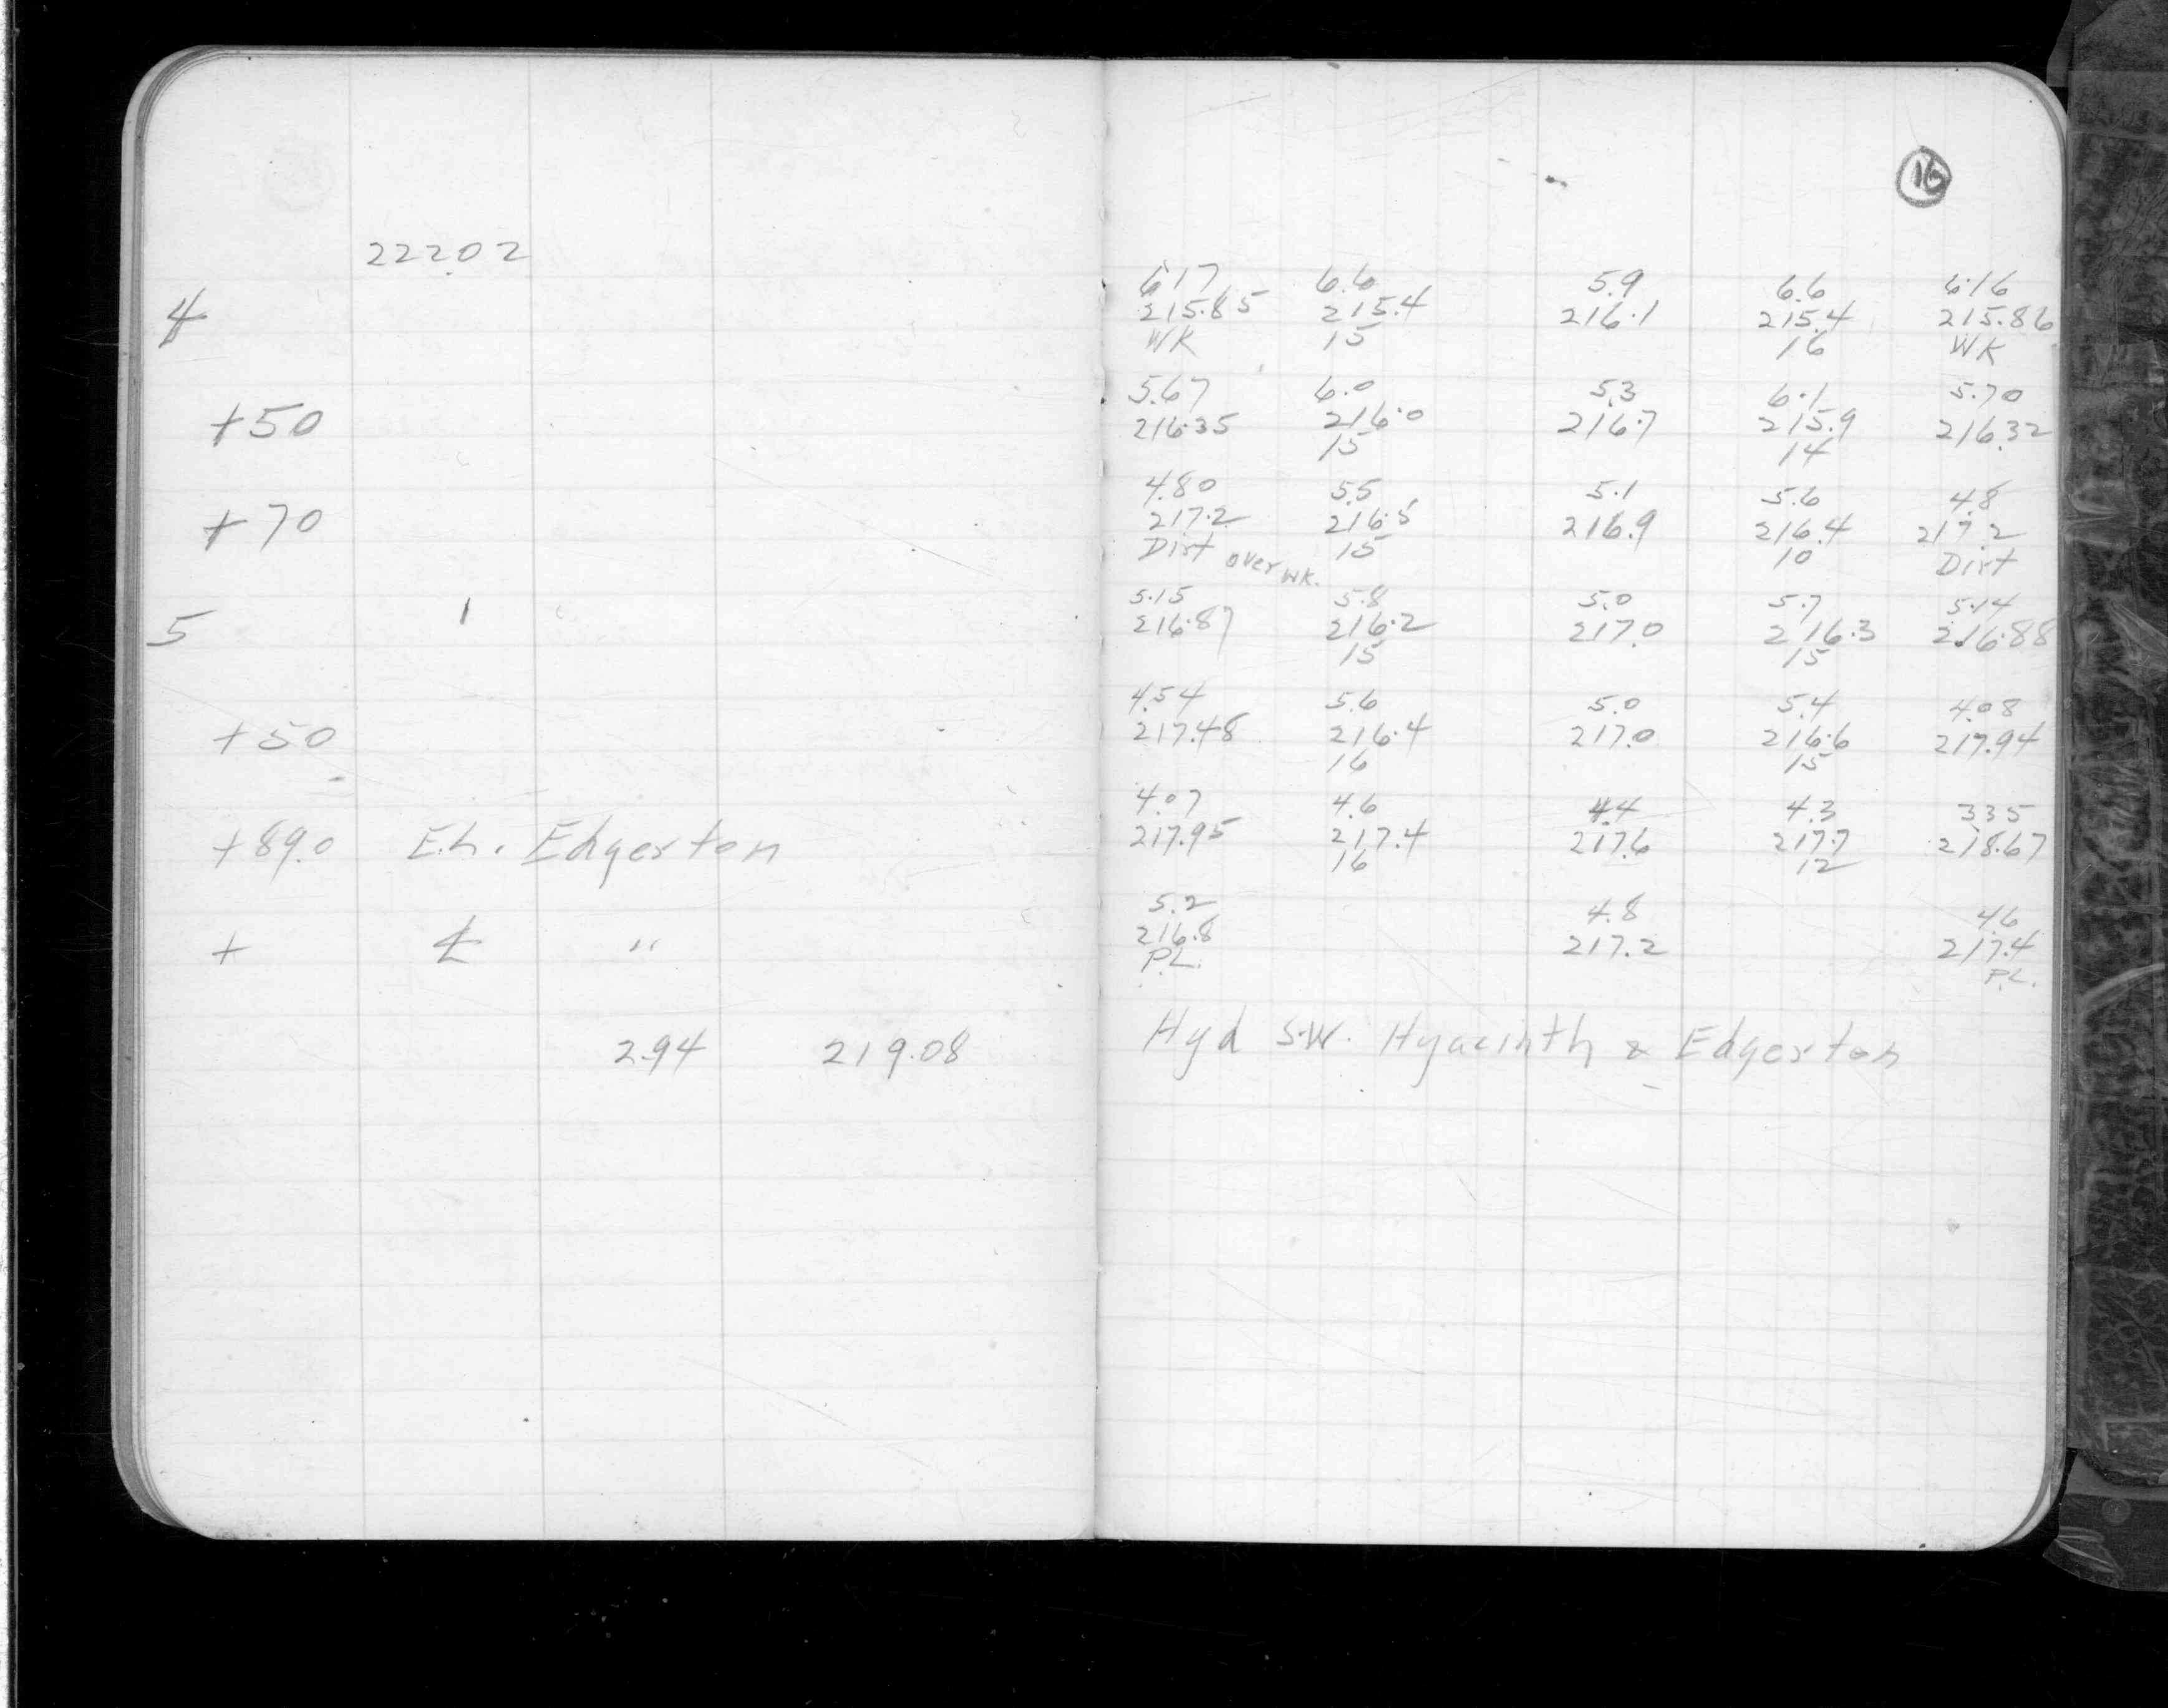 16
222.02
4
6.17 6.6 5.9 6.6 6.16
215.85 215.4 216.1 215.4 215.86
WK 15 16 WK
+50
5.67 6.0 5.3 6.1 5.70
216.35 216.0 216.7 215.9 216.32
15 14
+70
4.80 5.5 5.1 5.6 4.8
217.2 216.5 216.9 216.4 217.2
Dirt over WK. 15 10 Dirt
5
5.15 5.8 5.0 5.7 5.14
216.87 216.2 217.0 216.3 216.88
15 15
+50
4.54 5.6 5.0 5.4 4.08
217.48 216.4 217.0 216.6 217.94
16 15
+89.0 E.L. Edgerton
4.07 4.6 4.4 4.3 3.35
217.95 217.4 217.6 217.7 218.67
16 12
+ ℄ "
5.2 4.8 4.6
216.8 217.2 217.4
P.L. P.L.
2.94 219.08 Hyd S.W. Hyacinth & Edgerton